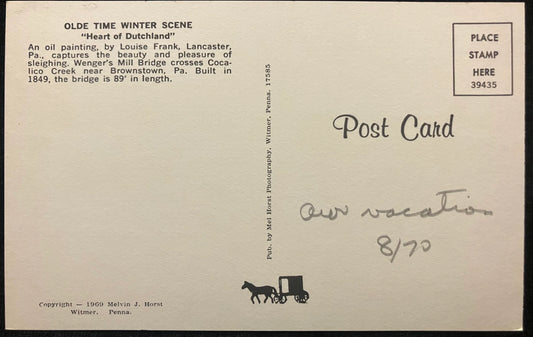 OLDE TIME WINTER SCENE
"Heart of Dutchland"
An oil painting, by Louise Frank, Lancaster,
Pa., captures the beauty and pleasure of
sleighing. Wenger's Mill Bridge crosses Coca-
lico Creek near Brownstown, Pa. Built in
1849, the bridge is 89' in length.
Pub. by Mel Horst Photography, Witmer, Penna. 17585
PLACE
STAMP
HERE
39435
Post Card
our vacation
8/70
Copyright — 1969 Melvin J. Horst
Witmer, Penna.